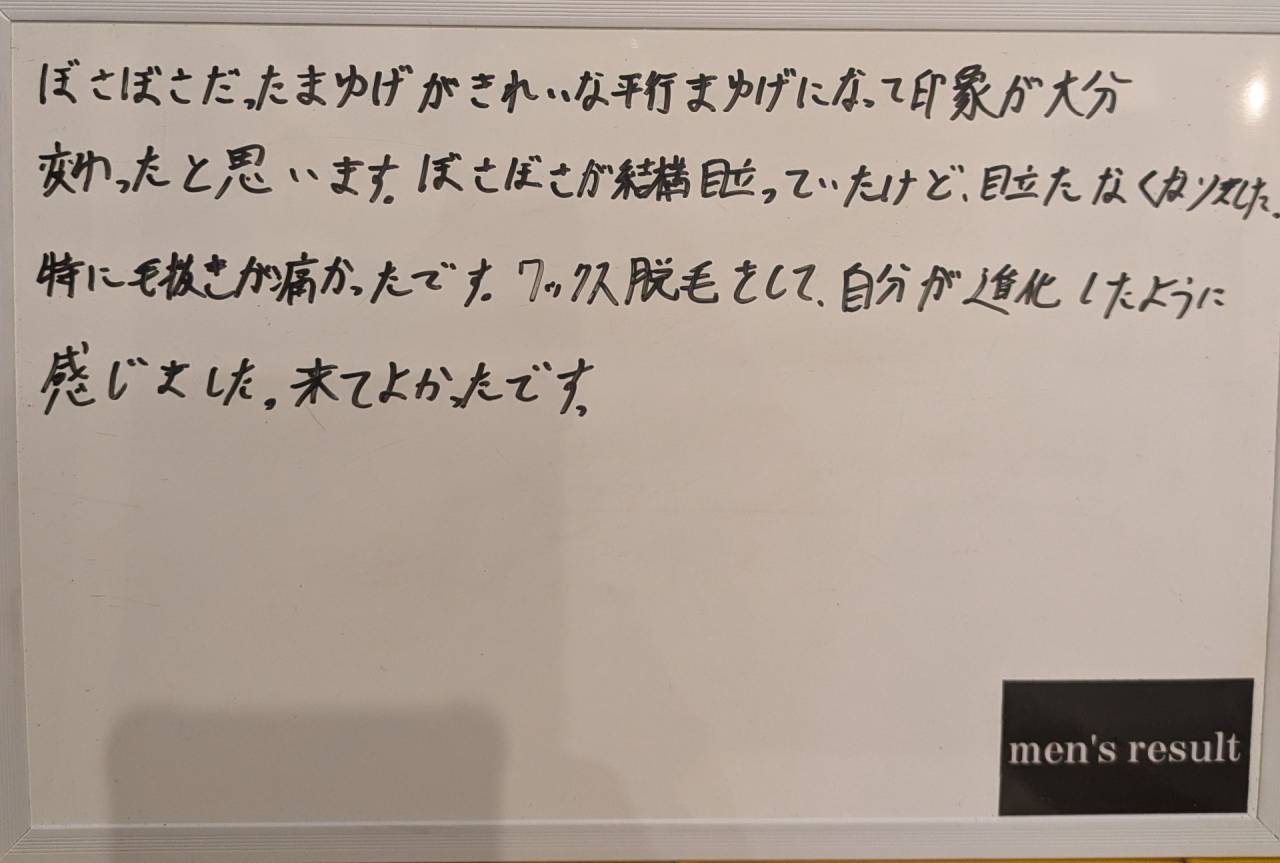 ぼさぼさだったまゆげがきれいな平行まゆげになって印象が大分
変わったと思います。ぼさぼさが結構目立っていたけど、目立たなくなりました。
特に毛抜きが痛かったです。ワックス脱毛をして、自分が進化したように
感じました。来てよかったです。
men's result